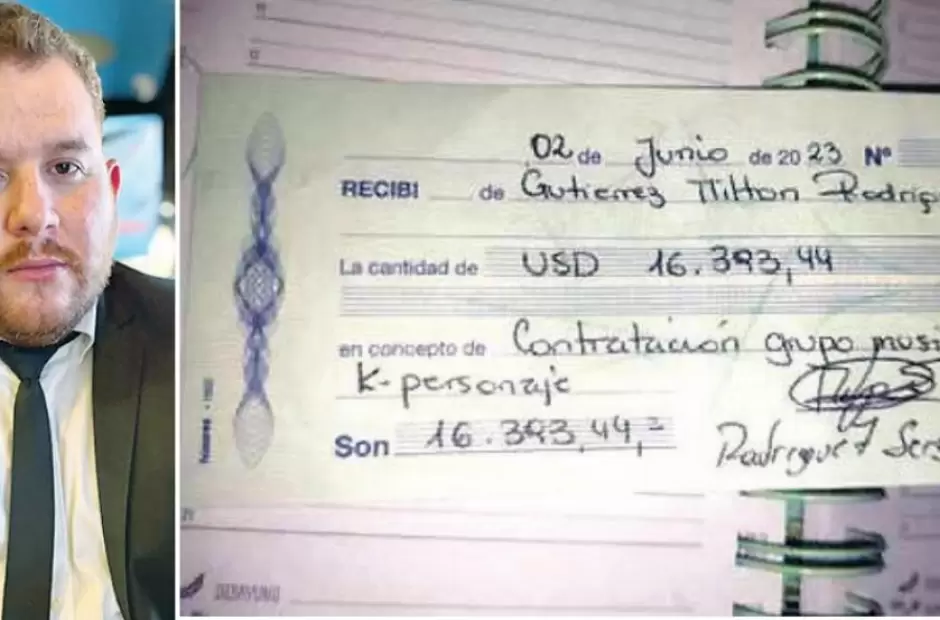 02 de Junio de 2023 Nº
RECIBI de Gutierrez Milton Rodrig
La cantidad de USD 16.393,44
en concepto de Contratación grupo musi
K-personaje
Son 16.393,44,=
Rodriguez Serg